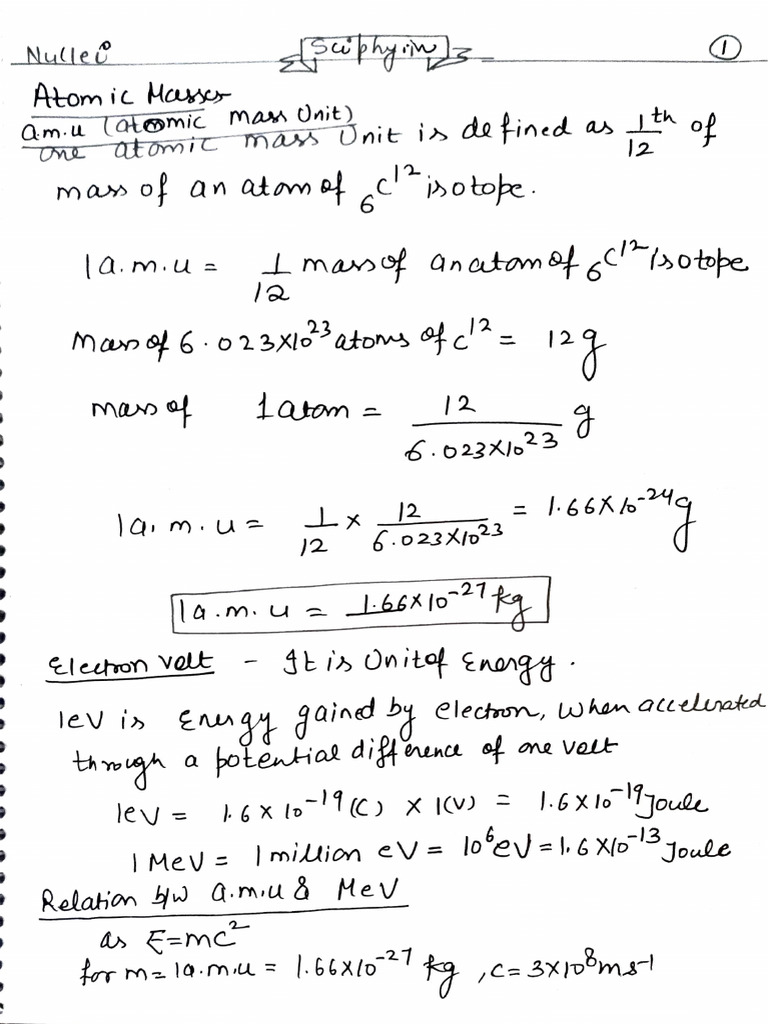 Nuclei Sciphy.in 1
Atomic Masses
a.m.u (atomic mass Unit)
one atomic mass Unit is defined as 1/12 th of
mass of an atom of ₆C¹² isotope.
1 a.m.u = 1/12 mass of an atom of ₆C¹² isotope
Mass of 6.023×10²³ atoms of C¹² = 12g
mass of 1 atom = 12/6.023×10²³ g
1a.m.u = 1/12 × 12/6.023×10²³ = 1.66×10⁻²⁴g
1a.m.u = 1.66×10⁻²⁷ kg
Electron Volt - It is Unit of Energy.
1eV is Energy gained by electron, when accelerated
through a potential difference of one volt
1eV = 1.6×10⁻¹⁹(C) × 1(V) = 1.6×10⁻¹⁹ Joule
1 MeV = 1 million eV = 10⁶eV = 1.6×10⁻¹³ Joule
Relation b/w a.m.u & MeV
as E=mc²
for m=1a.m.u = 1.66×10⁻²⁷ kg, c=3×10⁸ms-1